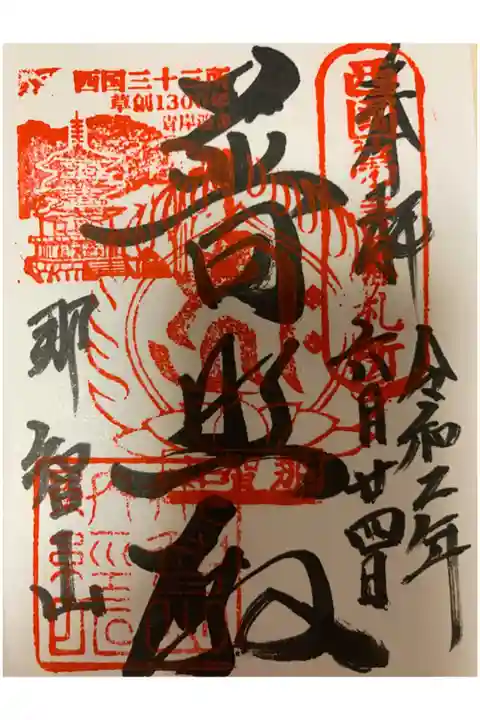 奉拝
西国第一番札所
令和二年
六月廿四日
普照殿
西国三十三所
草創1300年
那智山